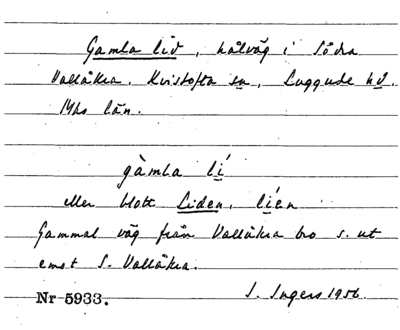 Gamla lid, hålväg i Södra
Vallåkra, Kvistofta sn, Luggude hd.
Mhs län.
gàmla lí
eller blott Liden, líen
Gammal väg från Vallåkra bro s. ut
emot S. Vallåkra.
Nr 5933. I. Ingers 1956.